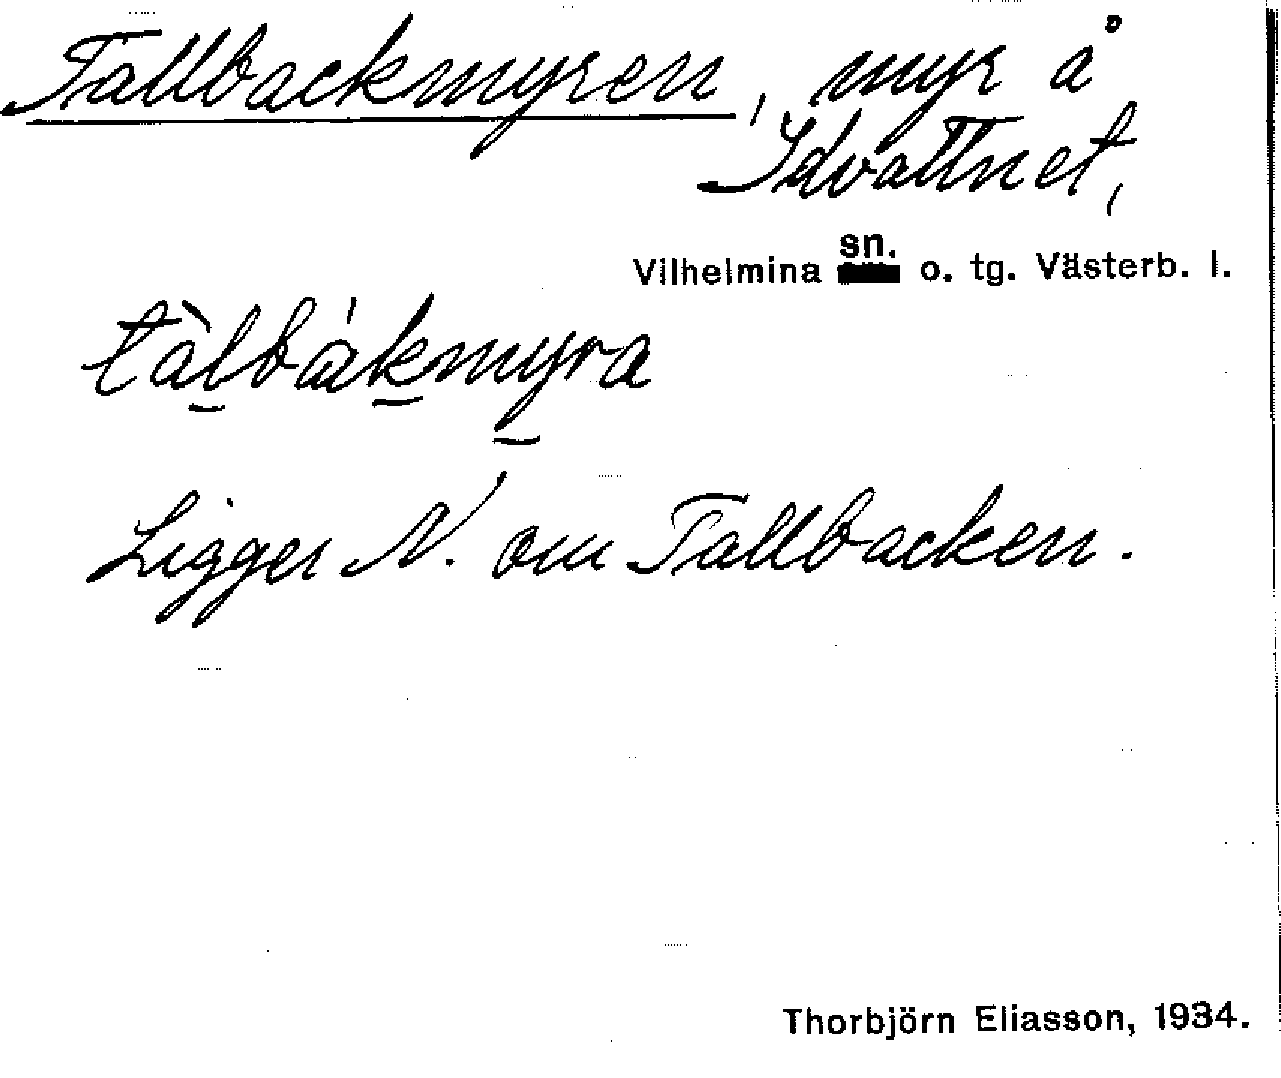 Tallbackmyren, myr å
Idvattnet,
Vilhelmina sn. o. tg. Västerb. l.
tàl̠bák̠my̠ra
Ligger N. om Tallbacken.
Thorbjörn Eliasson, 1934.